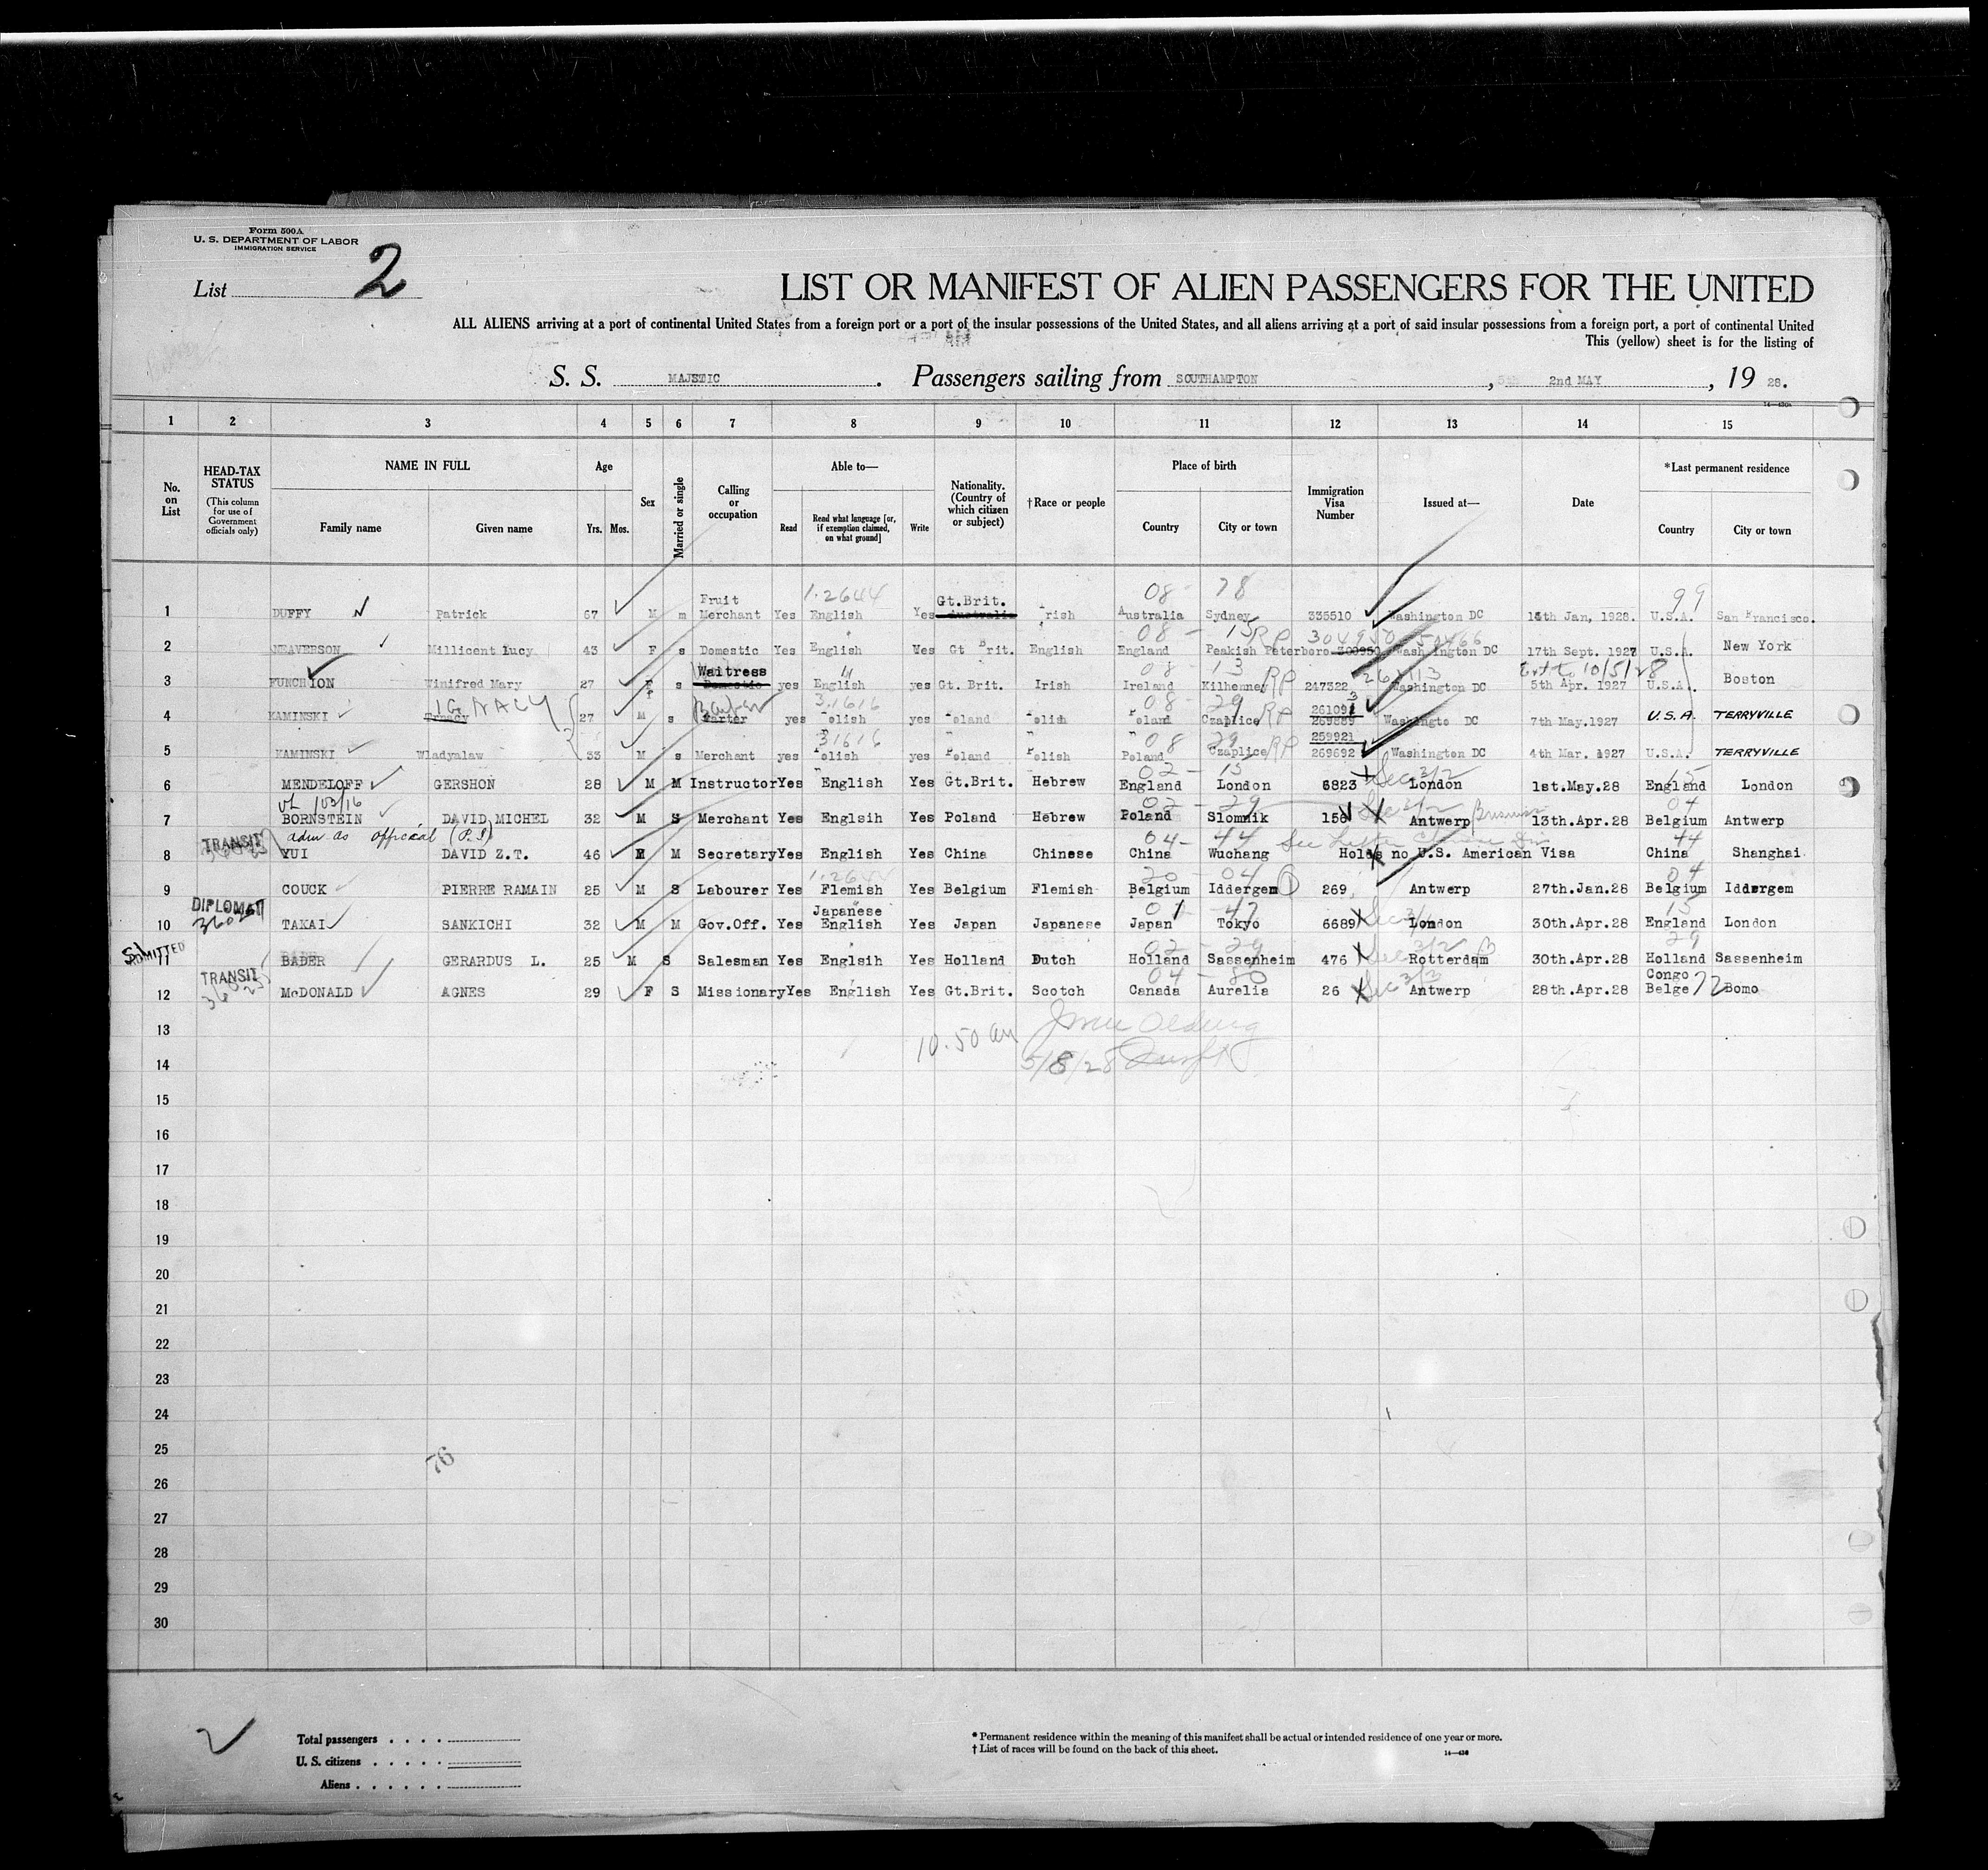 Form 500A
U. S. DEPARTMENT OF LABOR
IMMIGRATION SERVICE
List 2
LIST OR MANIFEST OF ALIEN PASSENGERS FOR THE UNITED
ALL ALIENS arriving at a port of continental United States from a foreign port or a port of the insular possessions of the United States, and all aliens arriving at a port of said insular possessions from a foreign port, a port of continental United
This (yellow) sheet is for the listing of
S. S. MAJSTIC. Passengers sailing from SOUTHAMPTON, 2nd MAY, 19 28.
1 2 3 4 5 6 7 8 9 10 11 12 13 14 15
No. on List
HEAD-TAX STATUS
(This column for use of Government officials only)
NAME IN FULL
Family name Given name
Age
Yrs. Mos.
Sex
Married or single
Calling or occupation
Able to—
Read
Read what language [or, if exemption claimed, on what ground]
Write
Nationality. (Country of which citizen or subject)
†Race or people
Place of birth
Country City or town
Immigration Visa Number
Issued at—
Date
*Last permanent residence
Country City or town
1.2644 08 - 78 99
Fruit Gt.Brit.
1 DUFFY Patrick 67 M m Merchant Yes English Yes Australia rish Australia Sydney 335510 Washington DC 14th Jan, 1928. U.S.A. San Francisco.
08 - 15 RP 304950 50466
2 NEAVERSON Millicent Lucy 43 F s Domestic Yes English Wes Gt Brit. English England Peakish Peterboro 300950 Washington DC 17th Sept. 1927 U.S.A. New York
Waitress 08 - 13 RP Ext to 10/5/28
3 FUNCHION Winifred Mary 27 F s Domestic yes English yes Gt. Brit. Irish Ireland Kilhenney 247322 Washington DC 5th Apr. 1927 U.S.A. Boston
IGNACY Barber 3.1616 08 - 29 RP 261091
4 KAMINSKI 27 M s Carter yes Polish yes Poland Polish Poland Czaplice 269889 Washingto DC 7th May.1927 U.S.A. TERRYVILLE
31616 08 29 RP 259921
5 KAMINSKI Wladyalaw 33 M s Merchant yes Polish yes Poland Polish Poland Czaplice 269692 Washington DC 4th Mar. 1927 U.S.A. TERRYVILLE
02 - 15 Sec 3/2 15
6 MENDELOFF GERSHON 28 M M Instructor Yes English Yes Gt.Brit. Hebrew England London 6823 London 1st.May.28 England London
02 - 29 Sec 3/2 Business 04
7 BORNSTEIN DAVID MICHEL 32 M S Merchant Yes Englsih Yes Poland Hebrew Poland Slomnik 158 Antwerp 13th.Apr.28 Belgium Antwerp
TRANSIT adm as official (P.I) 04 - 44 See Letter 44
8 YUI DAVID Z.T. 46 M M Secretary Yes English Yes China Chinese China Wuchang Holds no U.S. American Visa China Shanghai
1.264 20 - 04 04
9 COUCK PIERRE RAMAIN 25 M S Labourer Yes Flemish Yes Belgium Flemish Belgium Iddergem 269 Antwerp 27th.Jan.28 Belgium Iddergem
DIPLOMAT Japanese 01 - 47 Sec 3/1 15
10 TAKAI SANKICHI 32 M M Gov.Off. Yes English Yes Japan Japanese Japan Tokyo 6689 London 30th.Apr.28 England London
ADMITTED 02 - 29 Sec 3/2 B 29
11 BADER GERARDUS L. 25 M S Salesman Yes Englsih Yes Holland Dutch Holland Sassenheim 476 Rotterdam 30th.Apr.28 Holland Sassenheim
TRANSIT 04 - 80 Sec 3/3 Congo
12 McDONALD AGNES 29 F S Missionary Yes English Yes Gt.Brit. Scotch Canada Aurelia 26 Antwerp 28th.Apr.28 Belge 72 Bomo
13
10.50 am
14 5/8/28
15
16
17
18
19
20
21
22
23
24
25
76
26
27
28
29
30
Total passengers
U. S. citizens
Aliens
* Permanent residence within the meaning of this manifest shall be actual or intended residence of one year or more.
† List of races will be found on the back of this sheet.
14—430